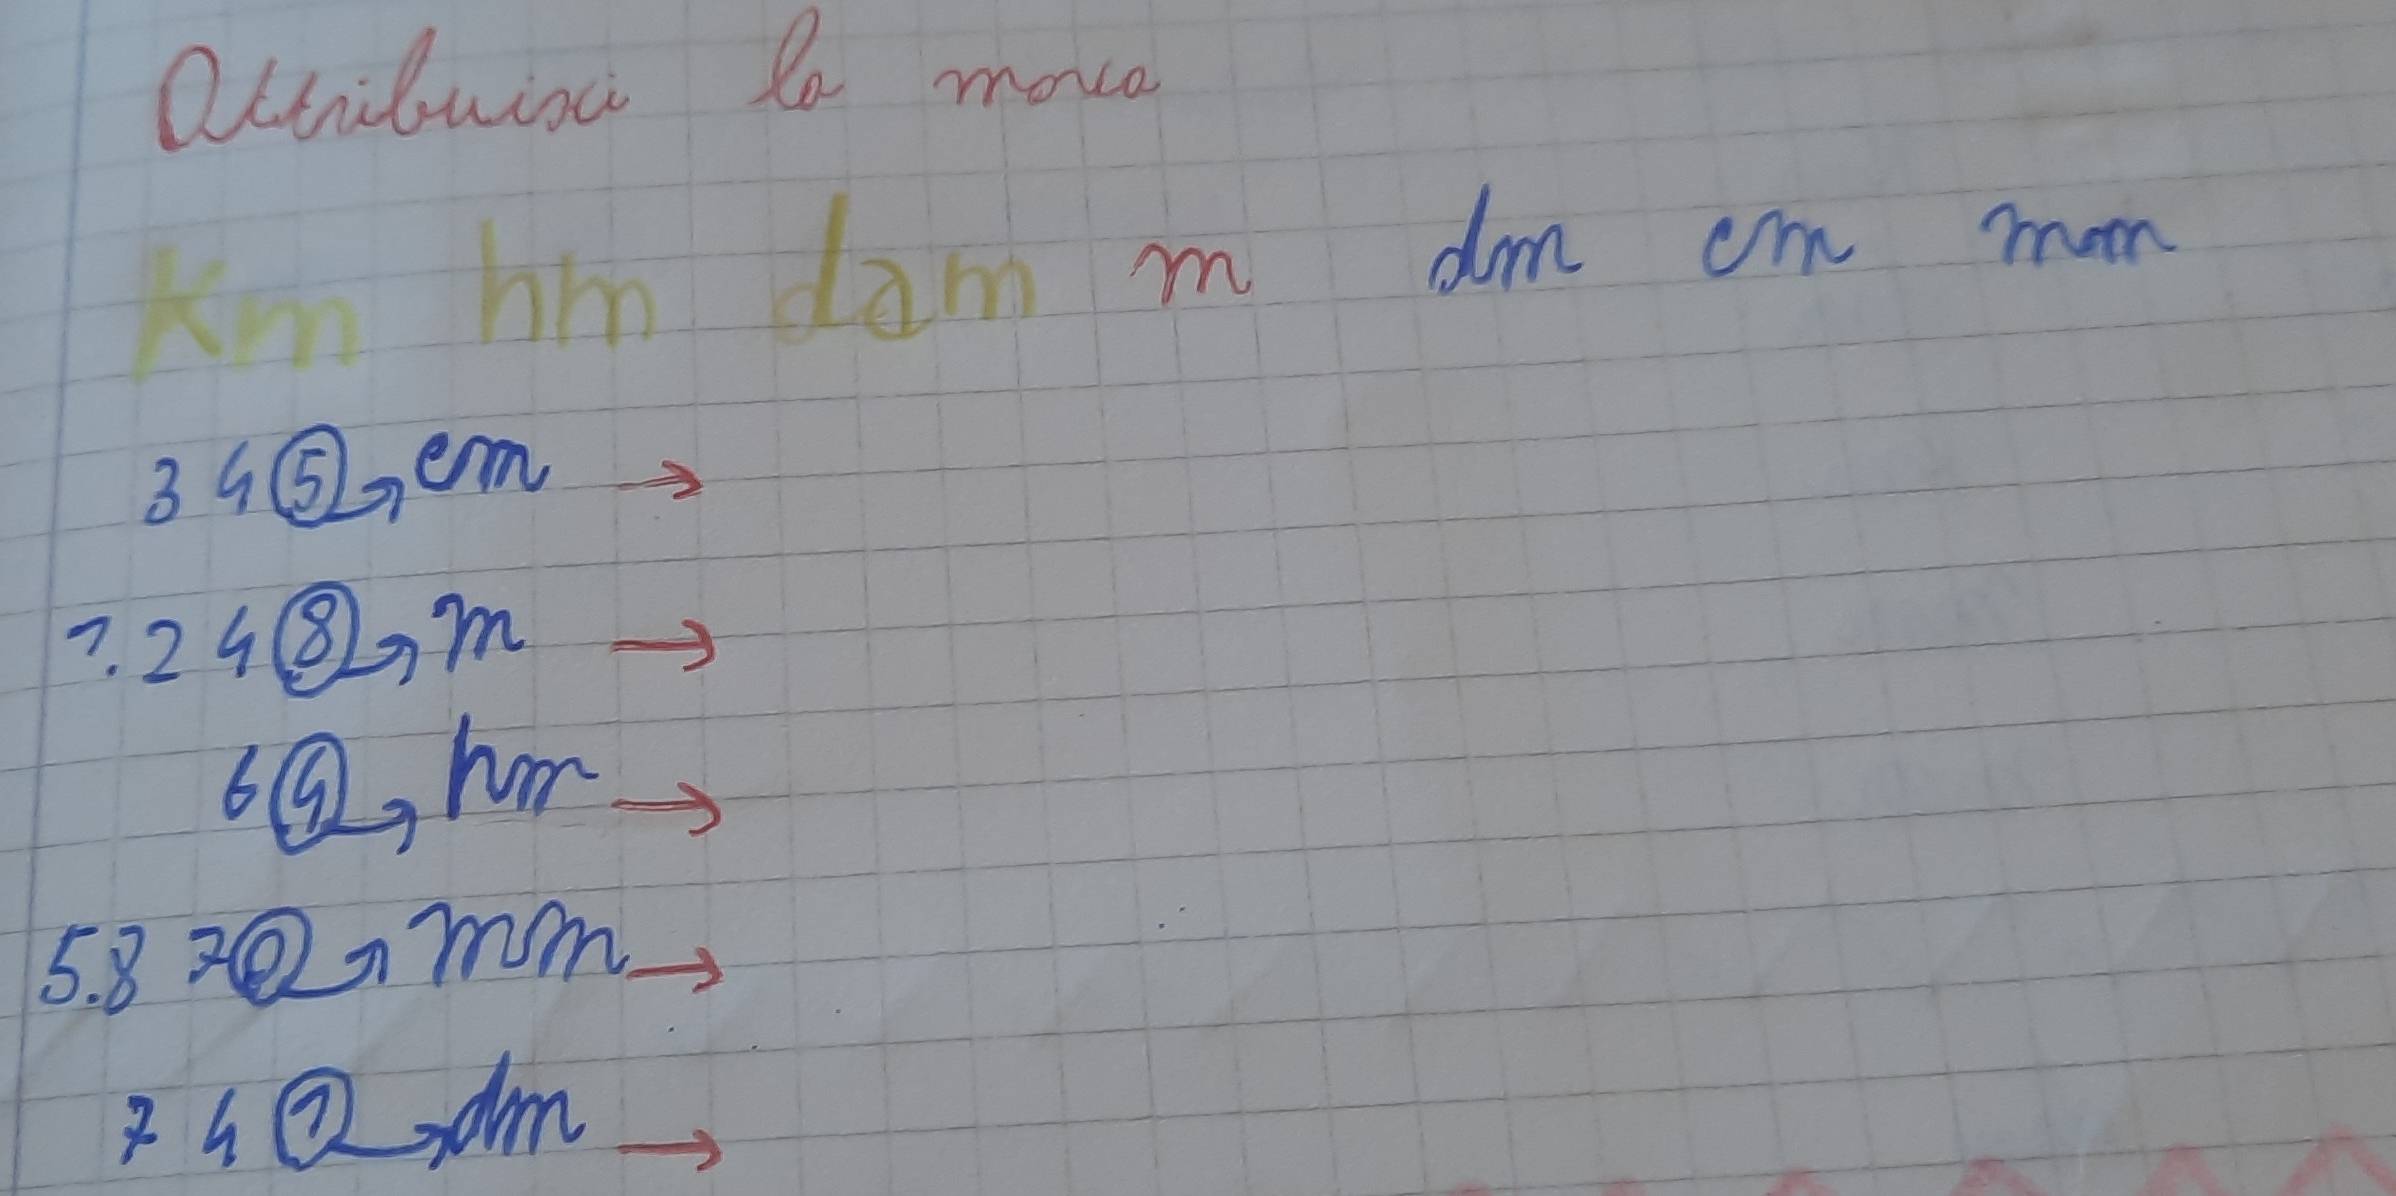 Attribuisci la marca
Km hm dam m dm cm mm
345 cm →
1.248 m →
64 hm →
5.870 mm →
741 dm →